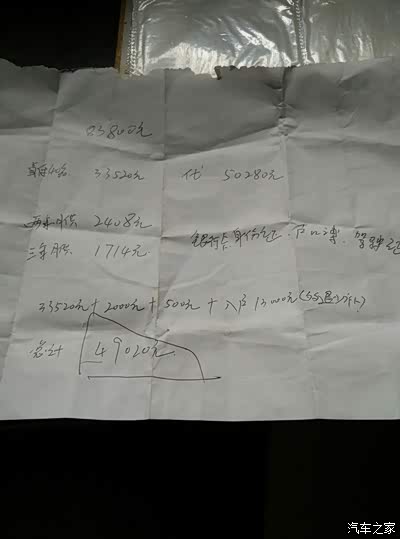 83800元
首付40% 33520元 代 50280元
两年月供 2408元
银行卡.身份证.户口簿.驾驶证
三年月供 1714元.
33520元+2000元+500元+入户13000元(多退少补)
总计 49020元.
汽车之家